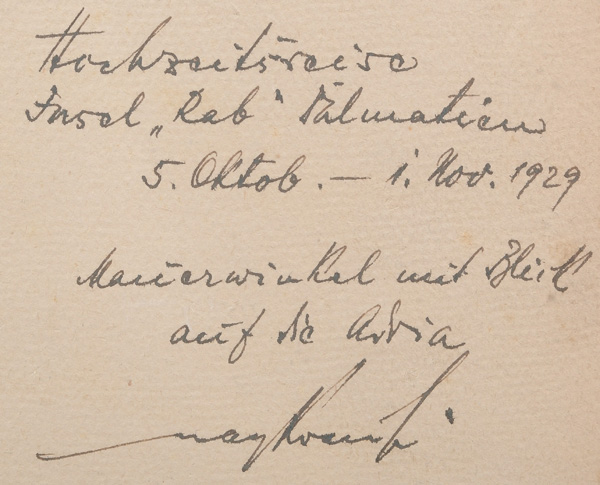 Hochzeitsreise
Insel „Rab" Dalmatien
5. Oktob. — 1. Nov. 1929
Mauerwinkel mit Blick
auf die Adria